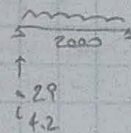 2000
29
4.2